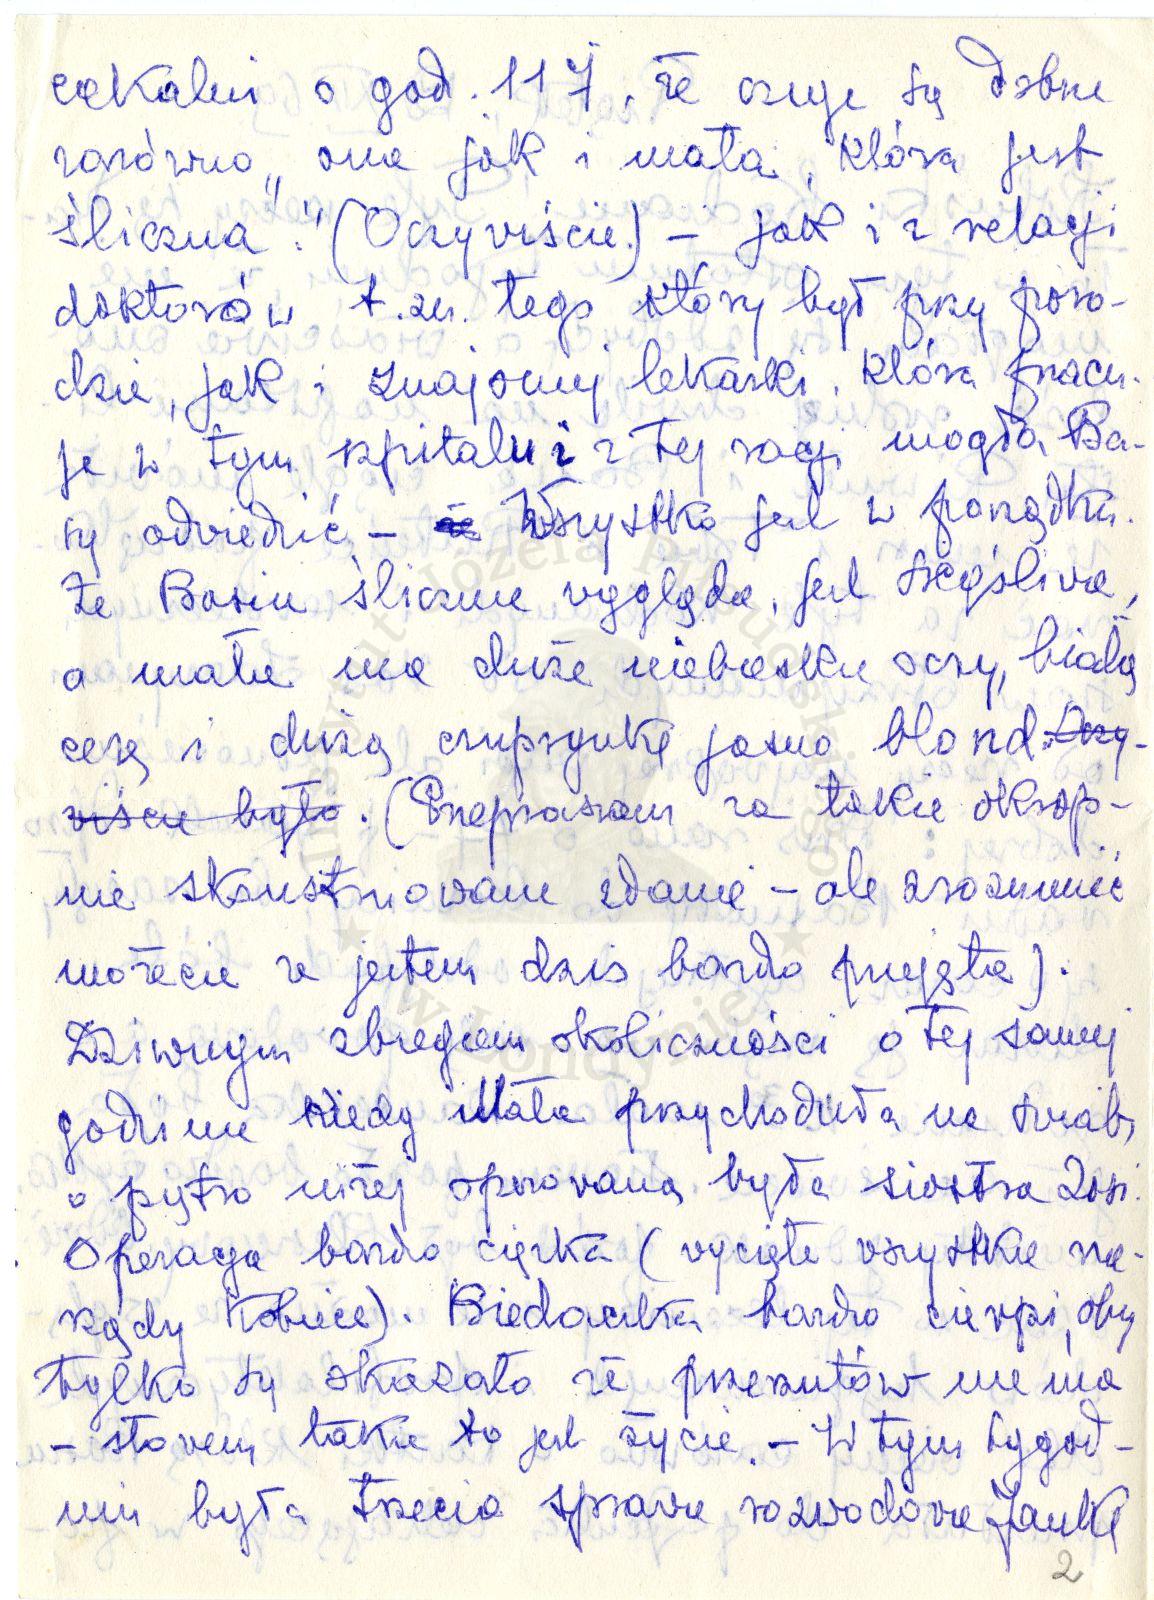 czekalni o god. 117, że czuje się dobrze
zarówno „ona jak i mała, która jest
śliczna". (Oczywiście.) – jak i z relacji
doktorów t.zn. tego który był przy poro-
dzie, jak i znajomej lekarki, która pracu-
je w tym szpitalu i z tej racji mogła Ba-
się odwiedzić – że Wszystko jest w porządku.
Że Basia ślicznie wygląda, jest szczęśliwa,
a mała ma duże niebieskie oczy, białą
cerę i dużą czuprynkę jasno blond. Oczy-
wiście było. (Przepraszam za takie okrop-
nie skonstruowane zdanie – ale zrozumieć
możecie że jestem dziś bardo przejęta).
Dziwnym zbiegiem okoliczności o tej samej
godzinie kiedy Mała przychodziła na świat,
o piętro niżej operowana była siostra Zosi.
Operacja bardo ciężka (wycięte wszystkie na-
rządy kobiece). Biedaczka bardo cierpi, oby
tylko się okazało że przerzutów nie ma
– słowem takie to jest życie. – W tym tygod-
niu była trzecia sprawa rozwodowa Janki
2
Instytut Józefa Piłsudskiego
★ w Londynie ★